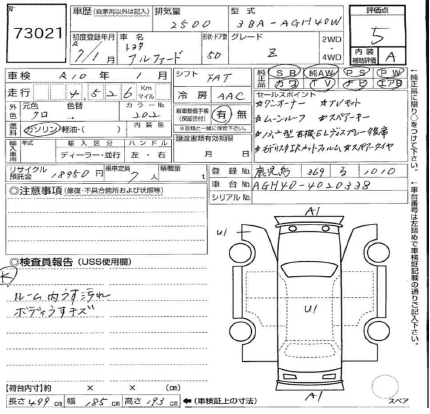 73021
車歴 (自家用以外は記入) 排気量 型式
2500 3BA-AGH40W
初度登録年月 車名 ドア形状 グレード 2WD
7/1月 トヨタ アルファード 5D Z 4WD
評価点
5
内装補助評価 A
車検 R10年 1月 シフト FAT 純正品 SR 純AW PS PW
走行 4,526 Km マイル 冷房 AAC カワ TV ナビ エアB
外色 元色 色替 カラーNo.
クロ 202
燃料 ガソリン 軽油・( ) 内装色
新車整備手帳(保証書付) 有・無
※記録と一緒に保管下さい。
輸入車 年式 輸入区分 ハンドル
ディーラー・並行 左・右
譲渡書類有効期限
月 日
セールスポイント
#ワンオーナー #アルゼット
#ムーンルーフ #スペアキー
リサイクル預託金 18950円 乗車定員 7人 積載量 t
登録No. 鹿児島 369 る 1010
車台No. AGH40-4020338
シリアルNo.
◎注意事項 (修復・不具合箇所および状態等)
◎検査員報告 (USS使用欄)
ルーム内うす汚れ
ボディうすキズ
A1
U1
U1
A1
スペア
【荷台内寸】約 × × (cm)
長さ 499 cm 幅 185 cm 高さ 193 cm ←(車検証上の寸法)
←純正品に限り〇をつけて下さい。
←車台番号は左詰めで車検証記載の通りご記入下さい。